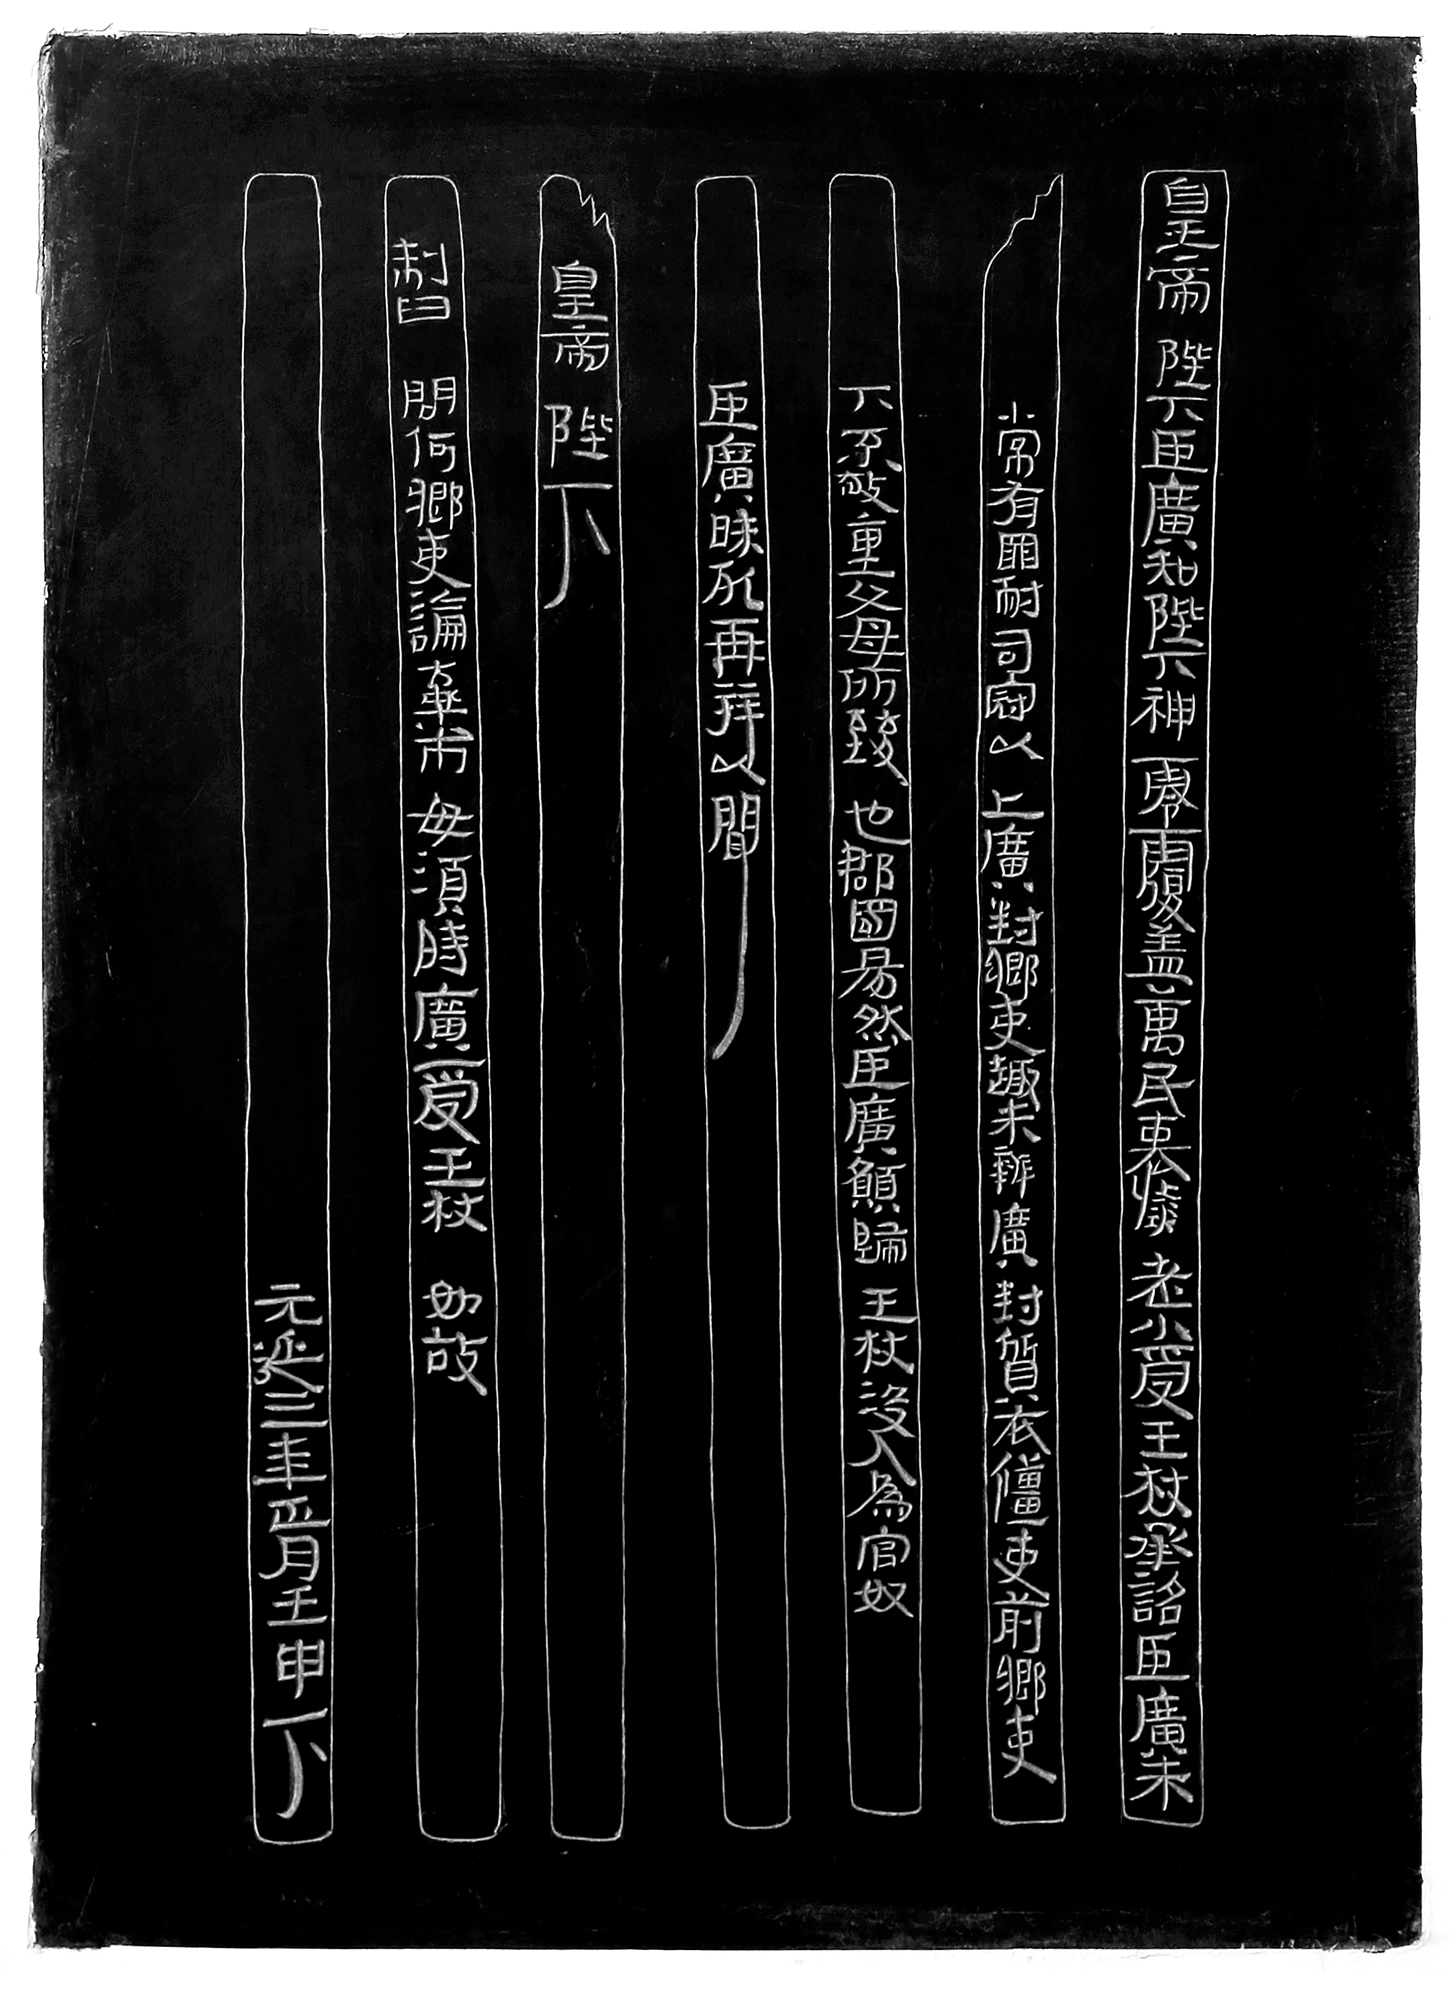 皇帝陛下臣廣知陛下神零覆蓋萬民哀憐老小受王杖承詔臣廣未
常有罪耐司寇以上廣對鄉吏趣未辨廣對質衣僵吏前鄉吏
下不敬重父母所致也郡國易然臣廣願歸王杖沒入為官奴
臣廣昧死再拜以聞
皇帝陛下
制曰問何鄉吏論棄市毋須時廣受王杖如故
元延三年正月壬申下